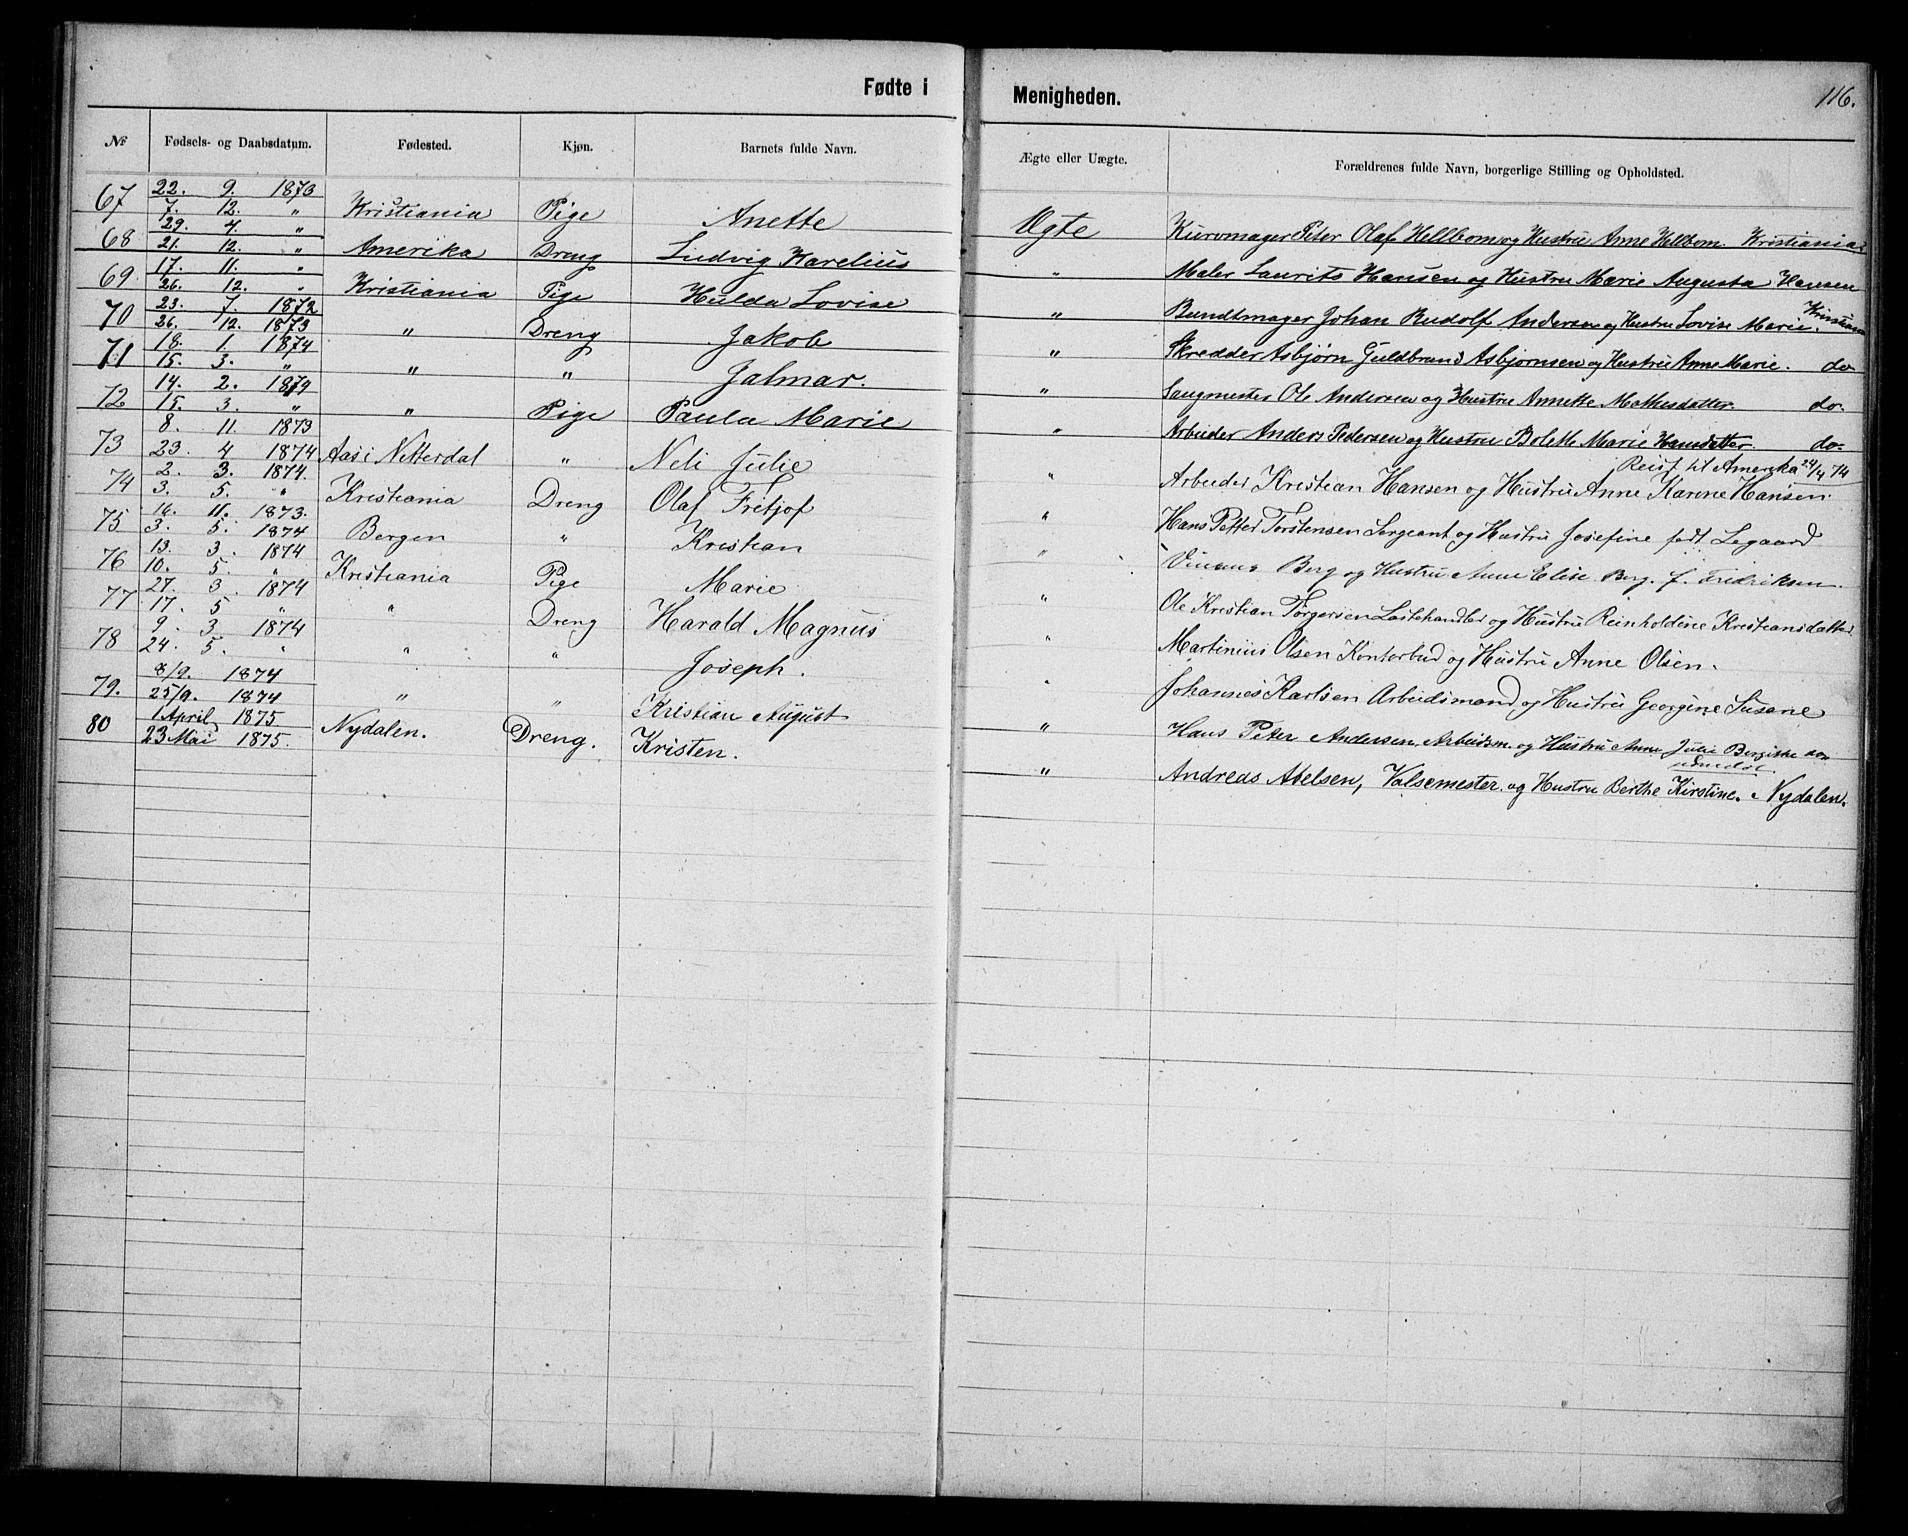 Fødte i Menigheden. 116.
№ Fødsels- og Daabsdatum. Fødested. Kjøn. Barnets fulde Navn. Ægte eller Uægte. Forældrenes fulde Navn, borgerlige Stilling og Opholdsted.
67 22. 9. 1873
7. 12. " Kristiania Pige Anette Ægte Kurvmager Peter Olaf Hellbom og Hustru Anne Hellbom. Kristiania
68 29. 7. "
21. 12. " Amerika Dreng Ludvig Karelius " Maler Laurits Hansen og Hustru Marie Augusta Hansen Kristiania
69 17. 11. "
26. 12. " Kristiania Pige Hulda Lovise " Bundtmager Johan Rudolf Andersen og Hustru Lovise Marie.
70 23. 7. 1872
26. 12. 1873 " Dreng Jakob " Skredder Asbjørn Guldbrand Asbjørnsen og Hustru Anne Marie. do
71 18. 1. 1874
15. 3. " " " Jalmar. " Saugmester Ole Andersen og Hustru Annette Mathisdatter. do.
72 14. 2. 1874
15. 3. " " Pige Paula Marie " Arbeider Anders Pedersen og Hustru Bolette Marie Hansdatter. do.
Reist til Amerika 24/4 74
73 8. 11. 1873
23. 4 1874 Aas i Nitterdal " Neli Julie " Arbeider Kristian Hansen og Hustru Anne Karine Hansen.
74 2. 3. 1874.
3. 5. " Kristiania Dreng Olaf Fritjof " Hans Petter Torstensen Sergeant og Hustru Josefine født Legaard
75 16. 11. 1873.
3. 5. 1874 Bergen " Kristian " Berg og Hustru Anne Elise Berg. f. Fredriksen.
76 13. 3. 1874
10. 5. " Kristiania Pige Marie " Ole Kristian Torgersen Lastehandler og Hustru Reinholdine Kristiansdatter.
77 27. 3. 1874
17. 5 " " Dreng Harald Magnus " Martinius Olsen Kontorbud og Hustru Anne Olsen.
78 9. 3 1874
24. 5. " " " Joseph. " Johannes Karlsen Arbeidsmand og Hustru Georgine Susane
79. 8/9. 1874
25/9. 1874 " " Kristian August " Hans Peter Andersen, Arbeidsm. og Hustru Anne Julie
80 1 April 1875
23 Mai 1875. Nydalen. Dreng. Kristen. " Andreas Abelsen, Valsemester og Hustru Berthe Kirstine. Nydalen.